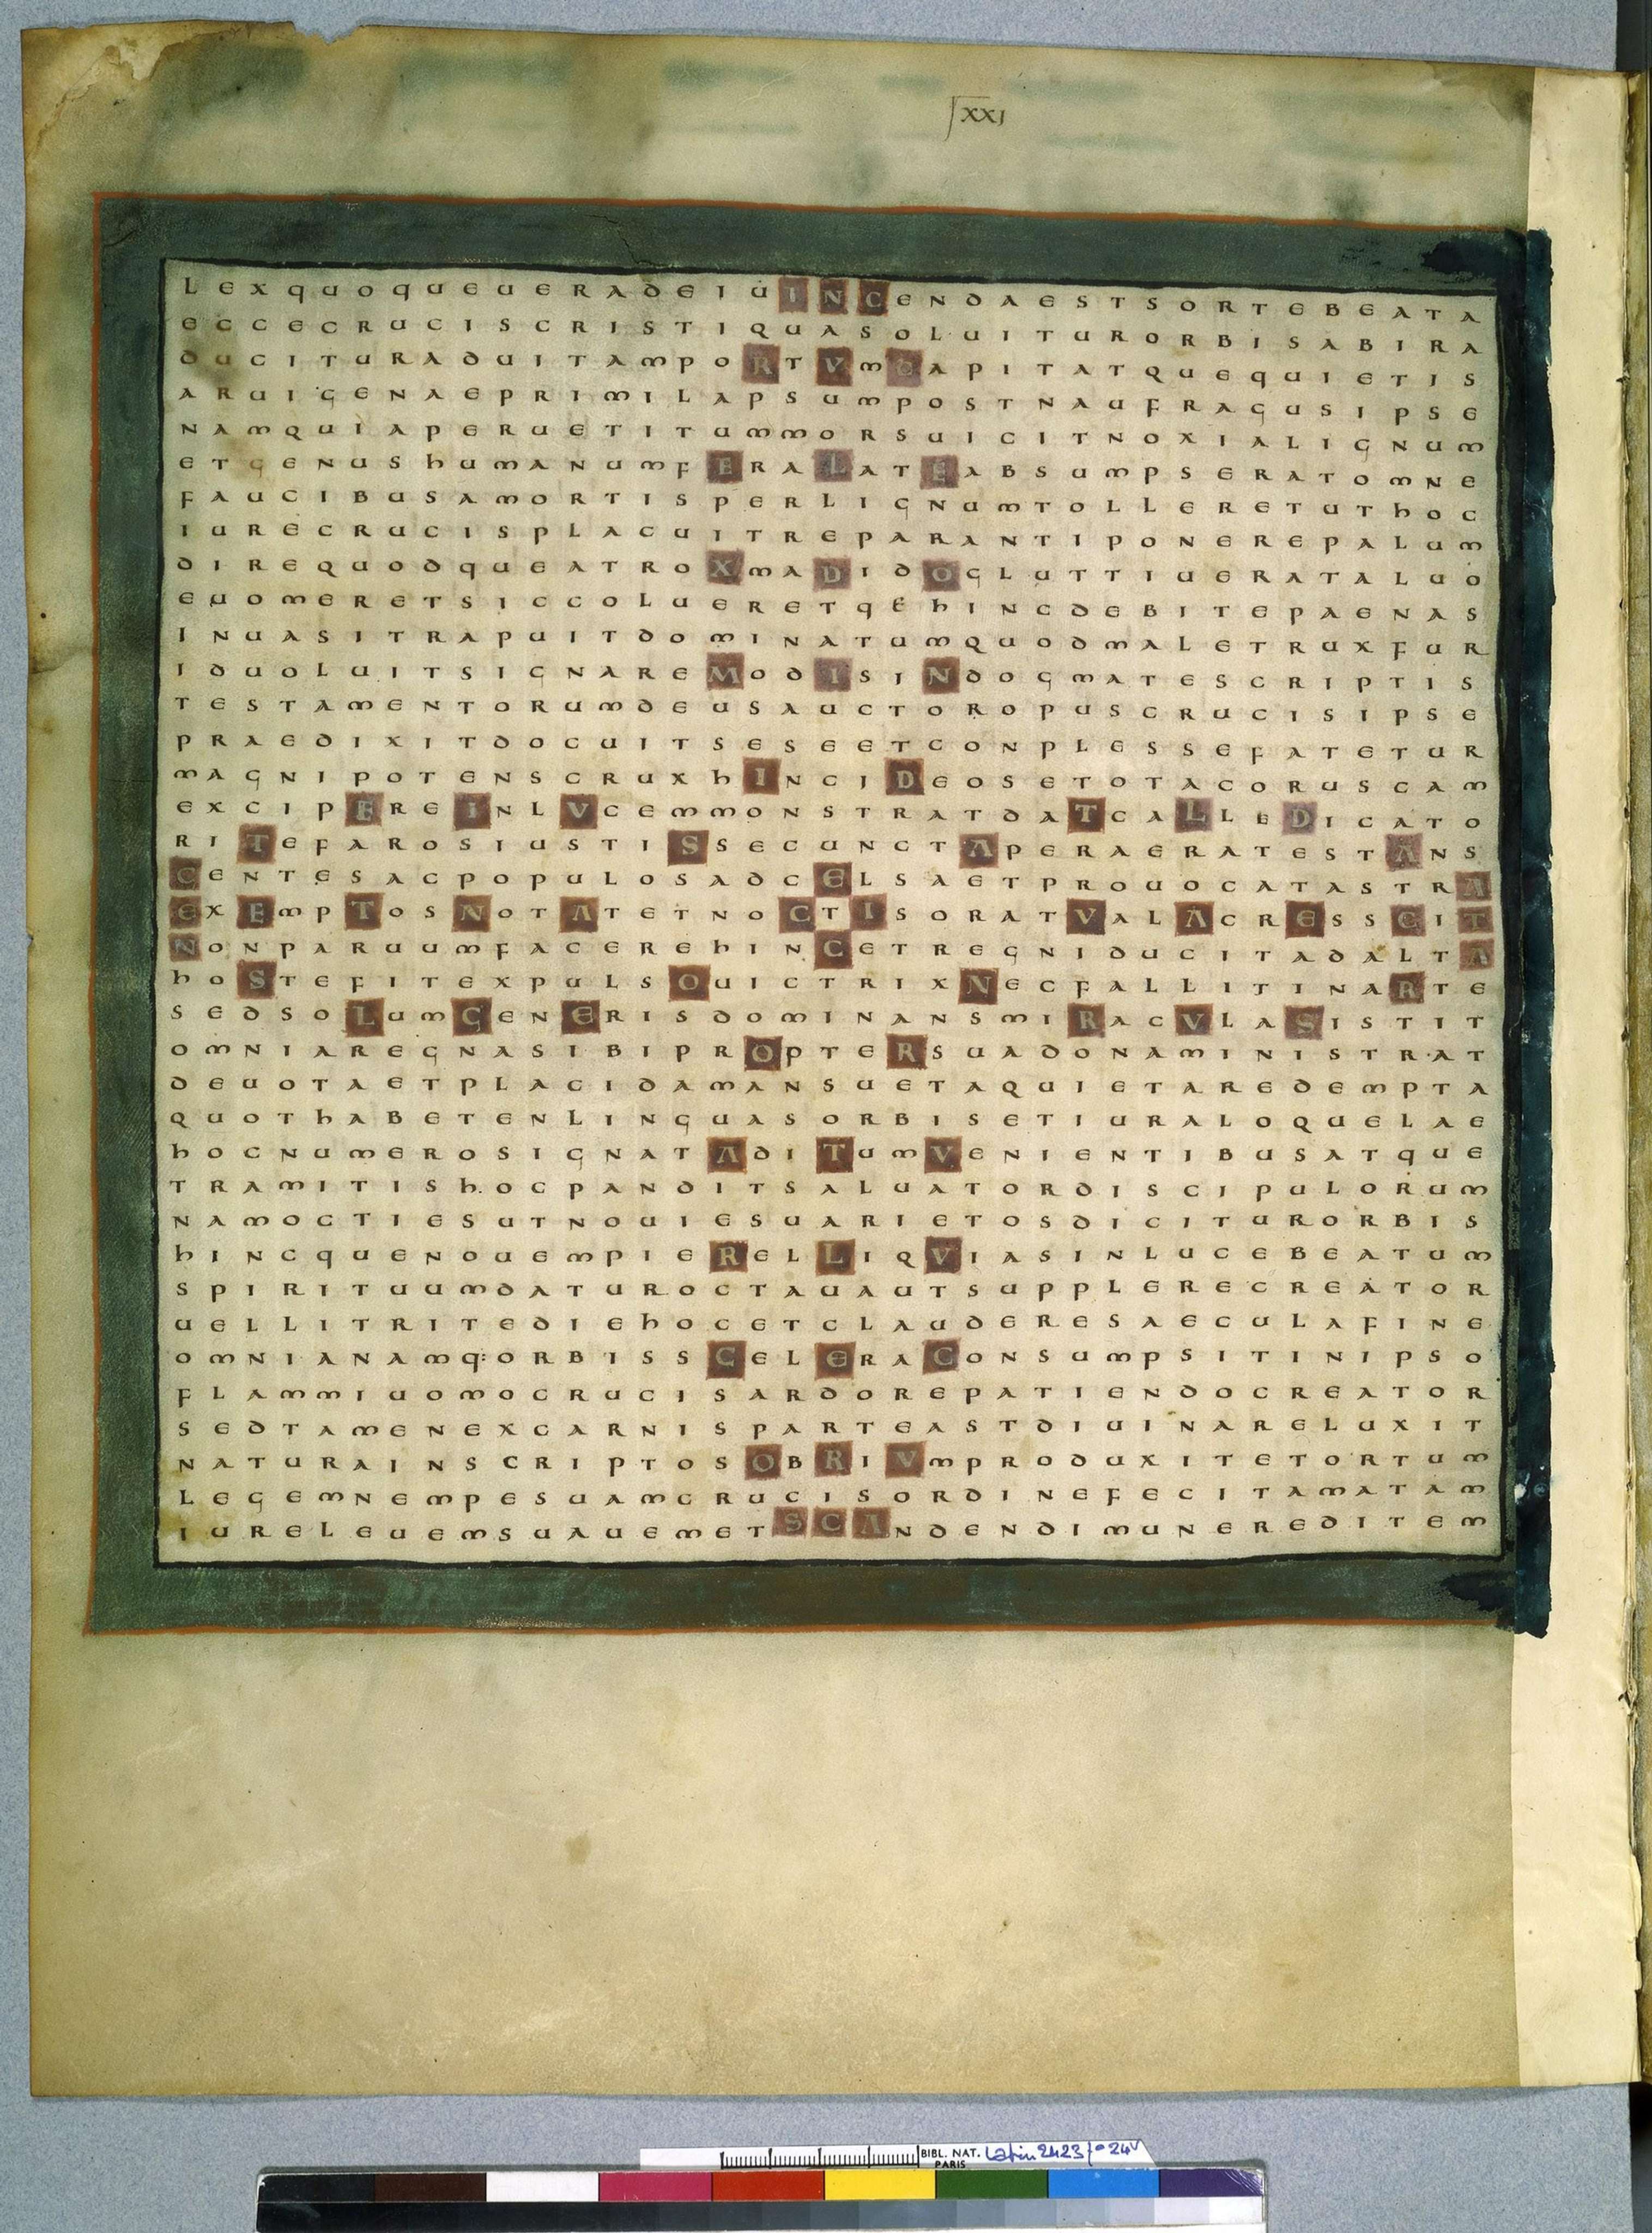 XXI
LEXQUOQUEUERADEIUINCENDAESTSORTEBEATA
ECCECRUCISCRISTIQUASOLUITURORBISABIRA
DUCITURADUITAMPORTVMCAPITATQUEQUIETIS
ARUIGENAEPRIMILAPSUMPOSTNAUFRAGUSIPSE
NAMQUIAPERUETITUMMORSUICITNOXIALIGNUM
ETGENUSHUMANUMFERALATEABSUMPSERATOMNE
FAUCIBUSAMORTISPERLIGNUMTOLLERETUTHOC
IURECRUCISPLACUITREPARANTIPONEREPALUM
DIREQUODQUEATROXMADIDOGLUTTIUERATALUO
EUOMERETSICCOLUERETQEHINCDEBITEPAENAS
INUASITRAPUITDOMINATUMQUODMALETRUXFUR
IDUOLUITSIGNAREMODISINDOGMATESCRIPTIS
TESTAMENTORUMDEUSAUCTOROPUSCRUCISIPSE
PRAEDIXITDOCUITSESEETCONPLESSEFATETUR
MAGNIPOTENSCRUXHINCIDEOSETOTACORUSCAM
EXCIPEREINLVCEMMONSTRATDATCALLEDICATO
RITEFAROSIUSTISSECUNCTAPERAERATESTANS
GENTESACPOPULOSADCELSAETPROUOCATASTRA
EXEMPTOSNOTATETNOCTISORATVALACRESSCIT
NONPARUUMFACEREHINCETREGNIDUCITADALTA
HOSTEFITEXPULSOUICTRIXNECFALLITINARTE
SEDSOLUMGENERISDOMINANSMIRACVLASISTIT
OMNIAREGNASIBIPROPTERSUADONAMINISTRAT
DEUOTAETPLACIDAMANSUETAQUIETAREDEMPTA
QUOTHABETENLINGUASORBISETIURALOQUELAE
HOCNUMEROSIGNATADITUMVENIENTIBUSATQUE
TRAMITISHOCPANDITSALUATORDISCIPULORUM
NAMOCTIESUTNOUIESUARIETOSDICITURORBIS
HINCQUENOUEMPIERELLIQVIASINLUCEBEATUM
SPIRITUUMDATUROCTAUAUTSUPPLERECREATOR
UELLITRITEDIEHOCETCLAUDERESAECULAFINE
OMNIANAMQ:ORBISSCELERACONSUMPSITINIPSO
FLAMMIUOMOCRUCISARDOREPATIENDOCREATOR
SEDTAMENEXCARNISPARTEASTDIUINARELUXIT
NATURAINSCRIPTOSOBRIVMPRODUXITETORTUM
LEGEMNEMPESUAMCRUCISORDINEFECITAMATAM
IURELEUEMSUAUEMETSCANDENDIMUNEREDITEM
BIBL. NAT.
PARIS
Latin 2423 f° 24v